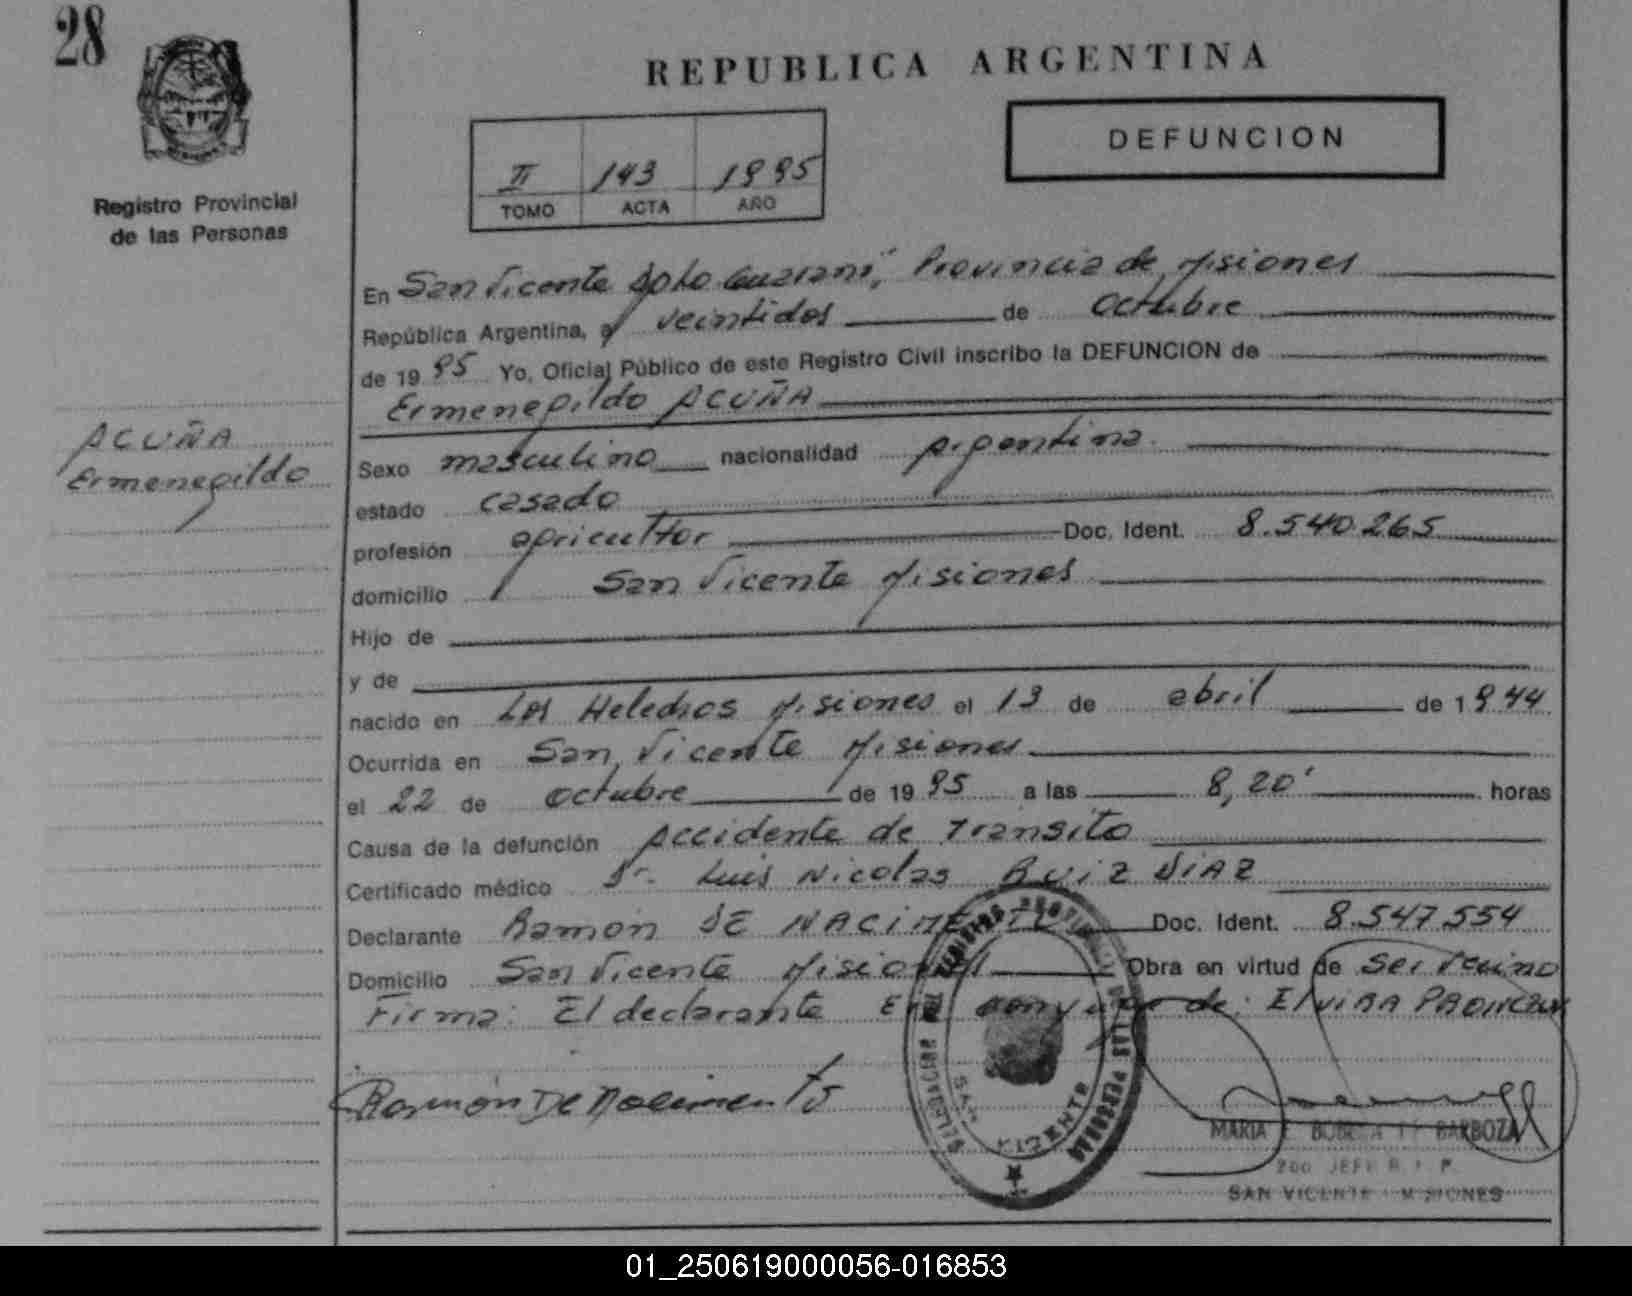 28
REPUBLICA ARGENTINA
DEFUNCION
II 143 1995
TOMO ACTA AÑO
Registro Provincial
de las Personas
En San Vicente Dpto. Guaraní, Provincia de Misiones
República Argentina, a veintidos de octubre
de 1995 Yo, Oficial Público de este Registro Civil inscribo la DEFUNCION de
Ermenegildo ACUÑA
ACUÑA
Ermenegildo
Sexo masculino nacionalidad Argentina.
estado casado
profesión agricultor Doc. Ident. 8.540.265
domicilio San Vicente Misiones
Hijo de
y de
nacido en Los Helechos Misiones el 13 de abril de 1944
Ocurrida en San Vicente Misiones
el 22 de octubre de 1995 a las 8,20' horas
Causa de la defunción Accidente de transito
Certificado médico Dr. Luis Nicolas RUIZ DIAZ
Declarante Ramon DE NACIMENTO Doc. Ident. 8.547.554
Domicilio San Vicente Misiones Obra en virtud de ser vecino
Firma: El declarante Era conyuge de: ELVIRA
Ramón De Nacimento
DELEGACION DEL REGISTRO PROVINCIAL DE LAS PERSONAS
SAN VICENTE
MARIA E. BARBOZA
2do JEFE R. P.
SAN VICENTE - MISIONES
01_250619000056-016853